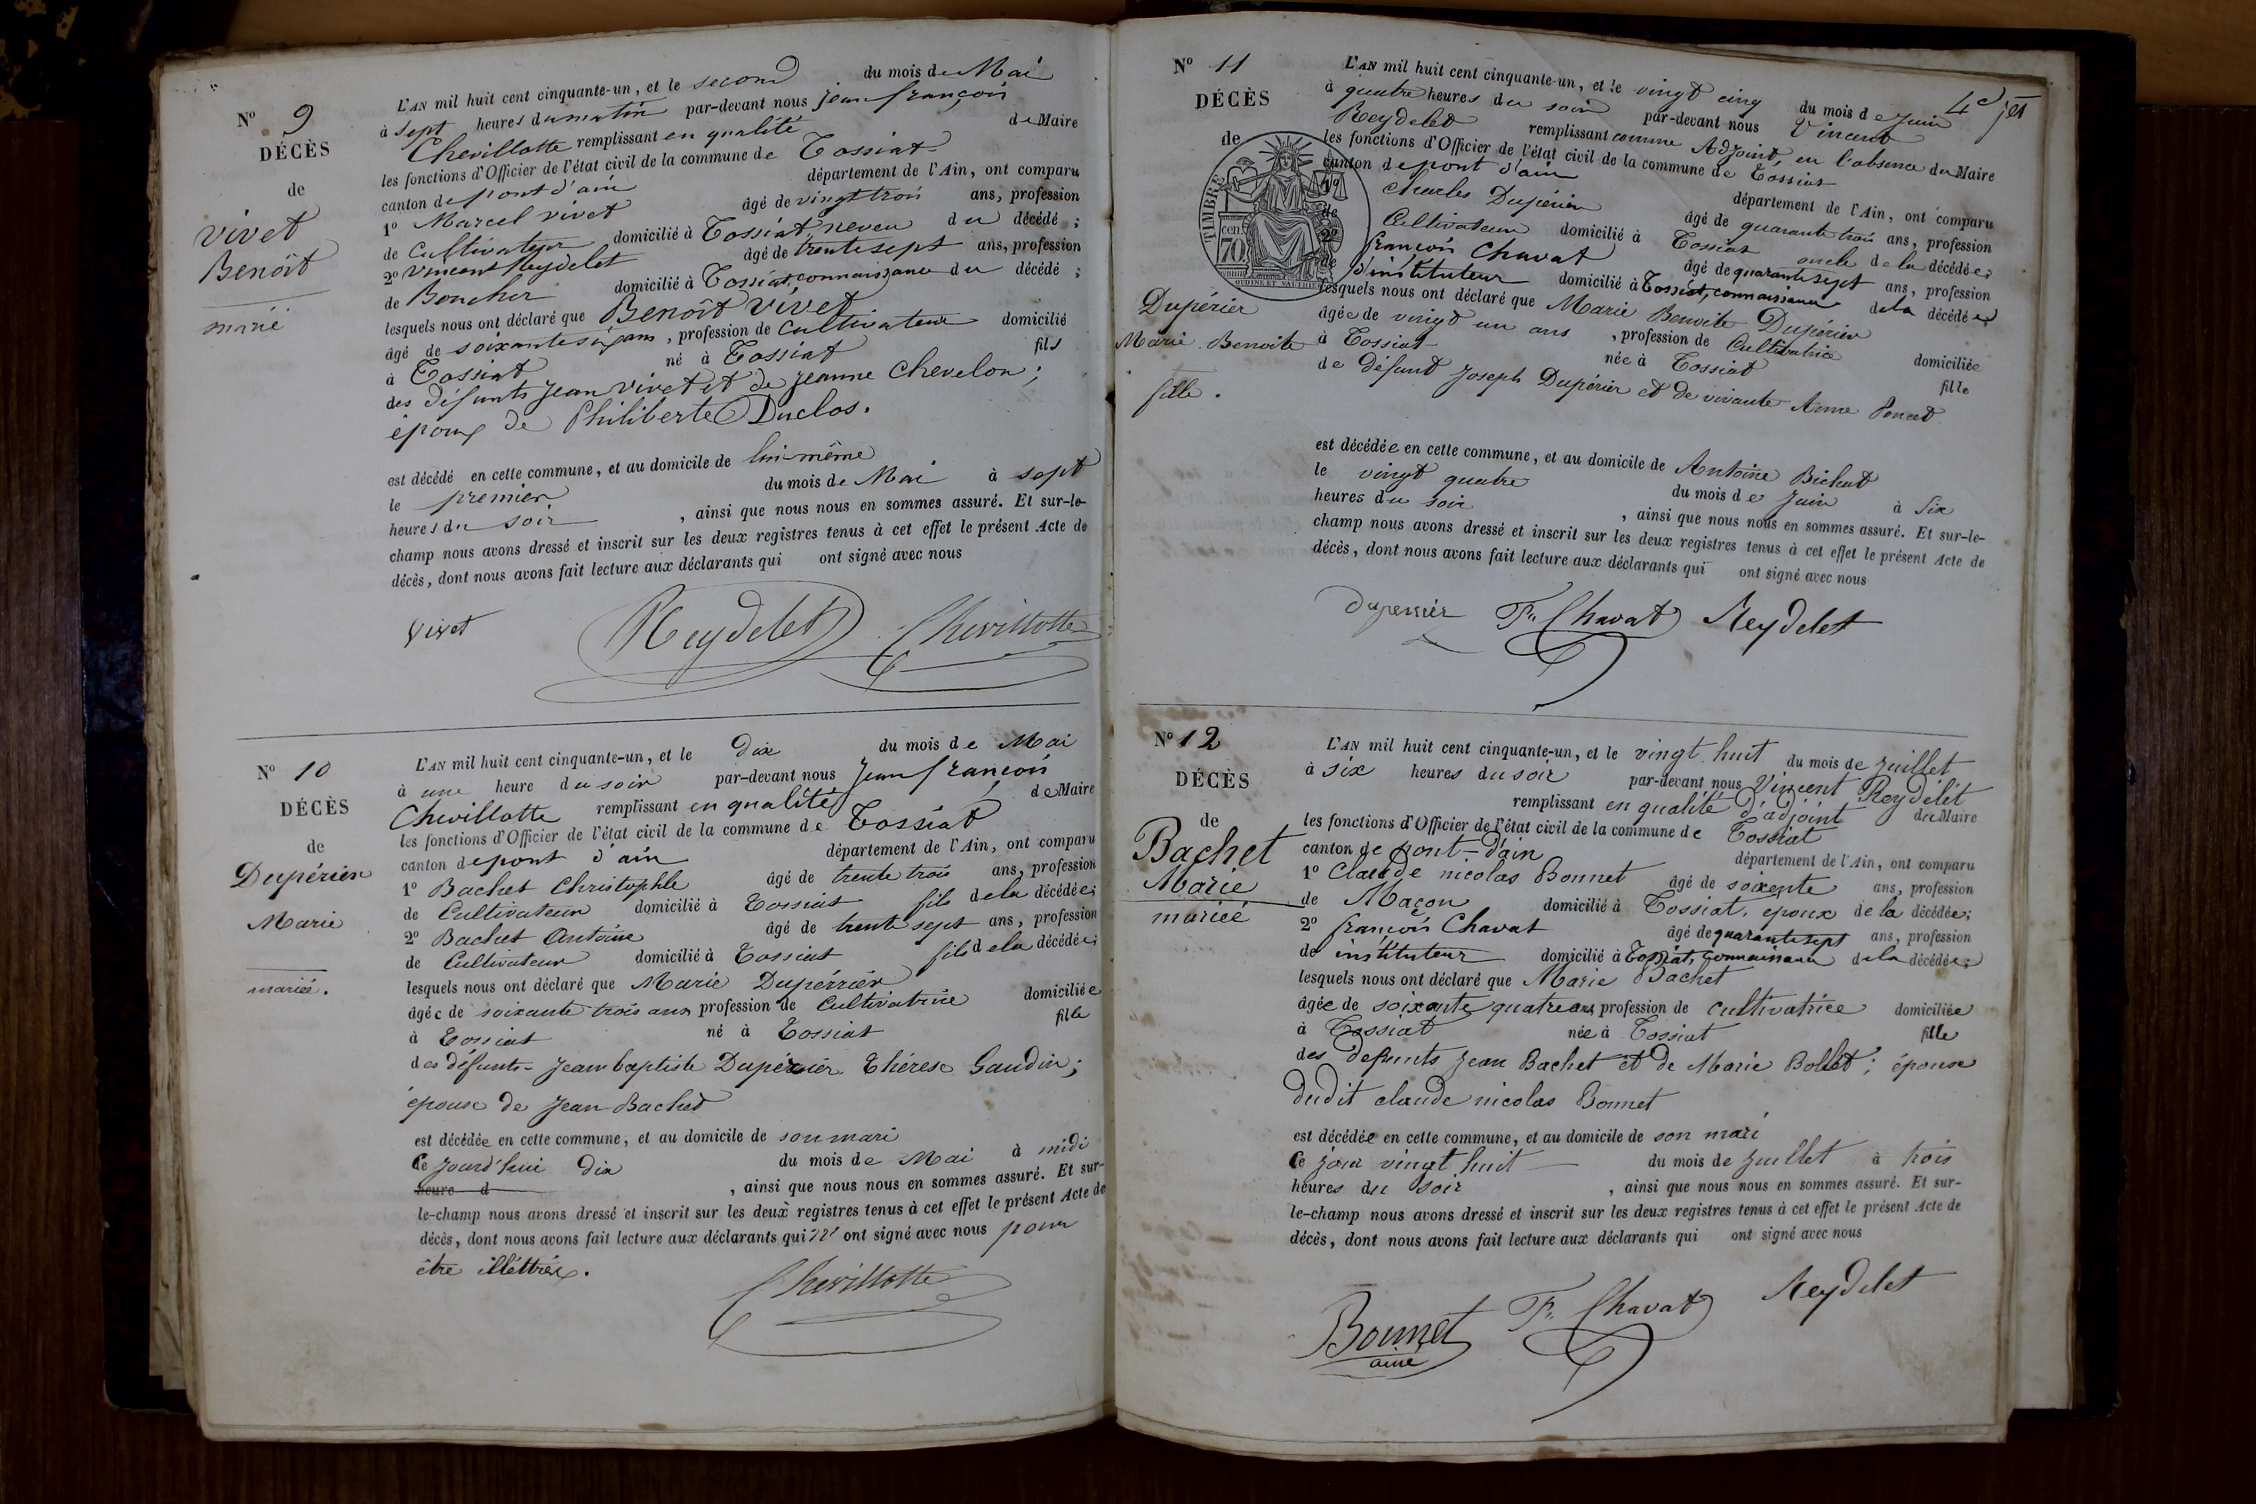 N° 9
DÉCÈS
de
Vivet
Benoît
marié
L'AN mil huit cent cinquante-un, et le second du mois de Mai
à sept heures du matin par-devant nous jean françois
Chevillotte remplissant en qualité de Maire
les fonctions d'Officier de l'état civil de la commune de Tossiat
canton de pont d'ain département de l'Ain, ont comparu
1° Marcel vivet âgé de vingt trois ans, profession
de Cultivateur domicilié à Tossiat neveu du décédé ;
2° Vincent Reydelet âgé de trente sept ans, profession
de Boucher domicilié à Tossiat, connaissance du décédé ;
lesquels nous ont déclaré que Benoît Vivet
âgé de soixante six ans, profession de Cultivateur domicilié
à Tossiat né à Tossiat fils
des défunts jean vivet et de jeanne Chevelon ;
époux de Philiberte Duclos.
est décédé en cette commune, et au domicile de lui-même
le premier du mois de Mai à sept
heures du soir, ainsi que nous nous en sommes assuré. Et sur-le-
champ nous avons dressé et inscrit sur les deux registres tenus à cet effet le présent Acte de
décès, dont nous avons fait lecture aux déclarants qui ont signé avec nous
Vivet Reydelet Chevillotte
N° 10
DÉCÈS
de
Dupérier
Marie
mariée.
L'AN mil huit cent cinquante-un, et le Dix du mois de Mai
à une heure du soir par-devant nous jean françois
Chevillotte remplissant en qualité de Maire
les fonctions d'Officier de l'état civil de la commune de Tossiat
canton de pont d'ain département de l'Ain, ont comparu
1° Bachet Christophle âgé de trente trois ans, profession
de Cultivateur domicilié à Tossiat fils de la décédée;
2° Bachet Antoine âgé de trente sept ans, profession
de Cultivateur domicilié à Tossiat fils de la décédée;
lesquels nous ont déclaré que Marie Dupérrier
âgée de soixante trois ans profession de Cultivatrice domiciliée
à Tossiat né à Tossiat fille
des défunts jean baptiste Dupérier Thérèse Gaudin ;
épouse de Jean Bachet
est décédée en cette commune, et au domicile de son mari
Ce jourd'hui Dix du mois de Mai à midi
heure d, ainsi que nous nous en sommes assuré. Et sur-
le-champ nous avons dressé et inscrit sur les deux registres tenus à cet effet le présent Acte de
décès, dont nous avons fait lecture aux déclarants qui n' ont signé avec nous pour
être illéttrés.
Chevillotte
4e jet
N° 11
DÉCÈS
de
TIMBRE
70 cen.
Dupérier
Marie Benoite
fille.
L'AN mil huit cent cinquante-un, et le vingt cinq du mois de juin
à quatre heures du soir par-devant nous Vincent
Reydelet remplissant comme Adjoint, en l'absence du Maire
les fonctions d'Officier de l'état civil de la commune de Tossiat
canton de pont d'ain département de l'Ain, ont comparu
1° Charles Dupérier âgé de quarante trois ans, profession
de Cultivateur domicilié à Tossiat oncle de la décédée;
2° françois Chavat âgé de quarante sept ans, profession
de d'instituteur domicilié à Tossiat, connaissance de la décédée;
lesquels nous ont déclaré que Marie Benoite Dupérier
âgée de vingt un ans, profession de Cultivatrice domiciliée
à Tossiat née à Tossiat fille
de défunt Joseph Dupérier et de vivante Anne Poncet
est décédée en cette commune, et au domicile de Antoine Bichat
le vingt quatre du mois de juin à Six
heures du soir, ainsi que nous nous en sommes assuré. Et sur-le-
champ nous avons dressé et inscrit sur les deux registres tenus à cet effet le présent Acte de
décès, dont nous avons fait lecture aux déclarants qui ont signé avec nous
Duperrier Fs Chavat Reydelet
N° 12
DÉCÈS
de
Bachet
Marie
mariée
L'AN mil huit cent cinquante-un, et le vingt huit du mois de juillet
à six heures du soir par-devant nous Vincent Reydelet
remplissant en qualité d'adjoint du Maire
les fonctions d'Officier de l'état civil de la commune de Tossiat
canton de pont-d'ain département de l'Ain, ont comparu
1° Claude nicolas Bonnet âgé de soixente ans, profession
de Maçon domicilié à Tossiat, époux de la décédée;
2° françois Chavat âgé de quarante sept ans, profession
de instituteur domicilié à Tossiat, connaissance de la décédée;
lesquels nous ont déclaré que Marie Bachet
âgée de soixante quatre ans, profession de cultivatrice domiciliée
à Tossiat née à Tossiat fille
des défunts Jean Bachet et de Marie Bollet ; épouse
dudit claude nicolas Bonnet
est décédée en cette commune, et au domicile de son mari
Ce jour vingt huit du mois de juillet à trois
heures du soir, ainsi que nous nous en sommes assuré. Et sur-
le-champ nous avons dressé et inscrit sur les deux registres tenus à cet effet le présent Acte de
décès, dont nous avons fait lecture aux déclarants qui ont signé avec nous
Bonnet ainé Fs Chavat Reydelet